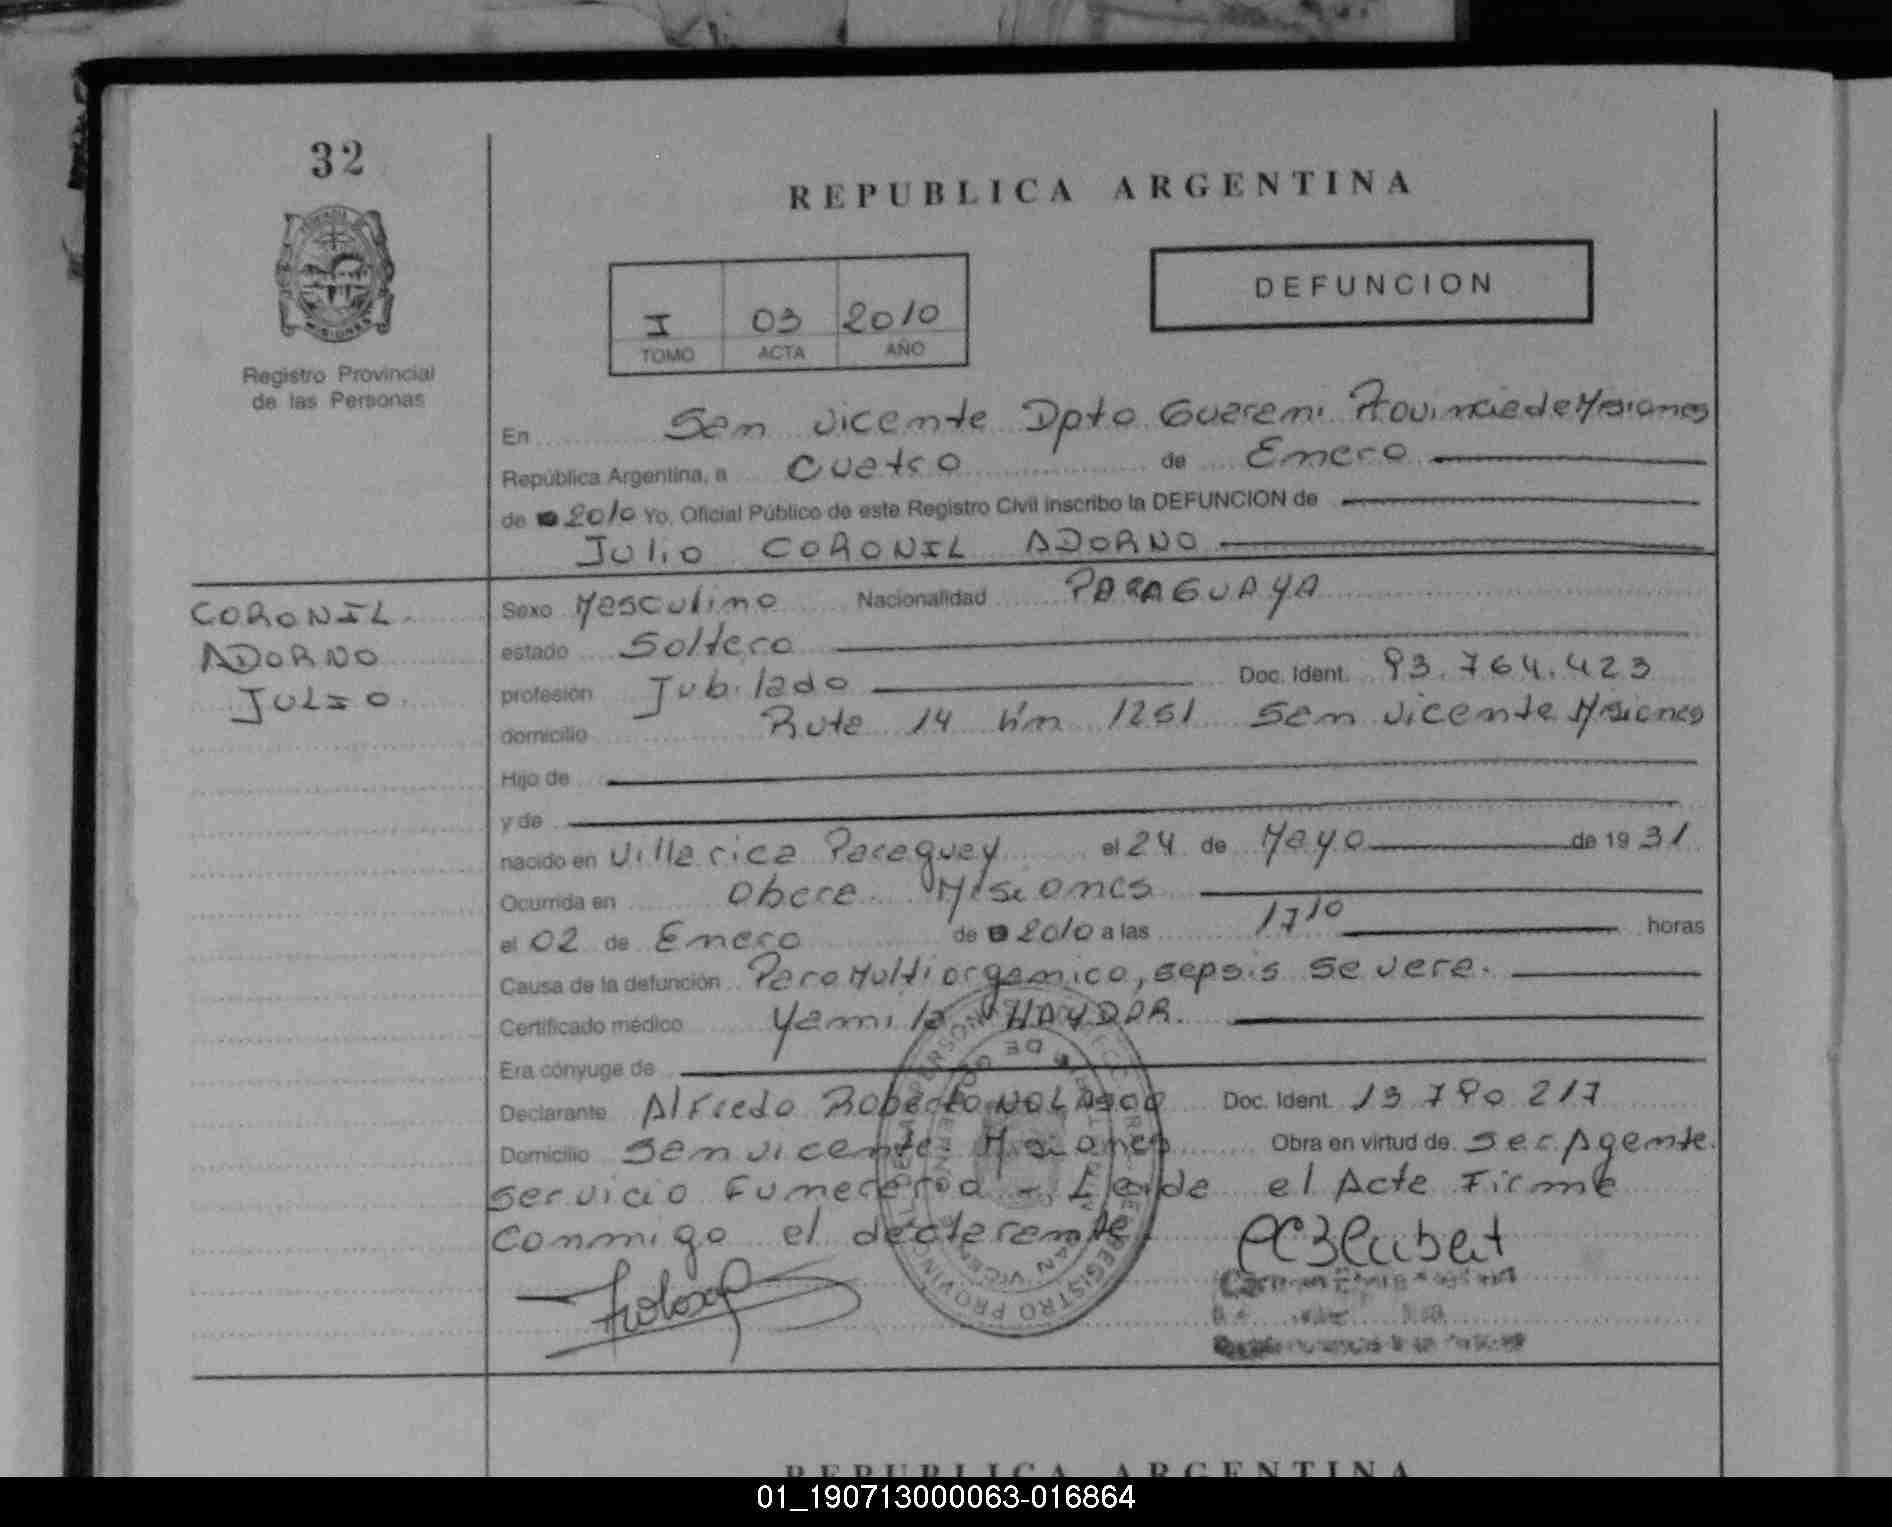 32
REPUBLICA ARGENTINA
DEFUNCION
I 03 2010
TOMO ACTA AÑO
Registro Provincial
de las Personas
En San Vicente Dpto Guarani Provincia de Misiones
República Argentina, a Cuatro de Enero
de 2010 Yo, Oficial Público de este Registro Civil inscribo la DEFUNCION de
Julio CORONIL ADORNO
CORONIL
ADORNO
JULIO.
Sexo Masculino Nacionalidad PARAGUAYA
estado Soltero
profesión Jubilado Doc. Ident. 93.764.423
domicilio Ruta 14 km 1251 San Vicente Misiones
Hijo de
y de
nacido en Villa rica Paraguay el 24 de Mayo de 1931
Ocurrida en Obera Misiones
el 02 de Enero de 2010 a las 17 10 horas
Causa de la defunción Paro Multiorganico, sepsis severa.
Certificado médico Yamila HAYDAR.
Era cónyuge de
Declarante Alfredo Roberto Doc. Ident. 13 790 217
Domicilio San Vicente Misiones Obra en virtud de Ser Agente
servicio Funerario - Leida el Acta Firma
Conmigo el declarante
REPUBLICA ARGENTINA
01_190713000063-016864